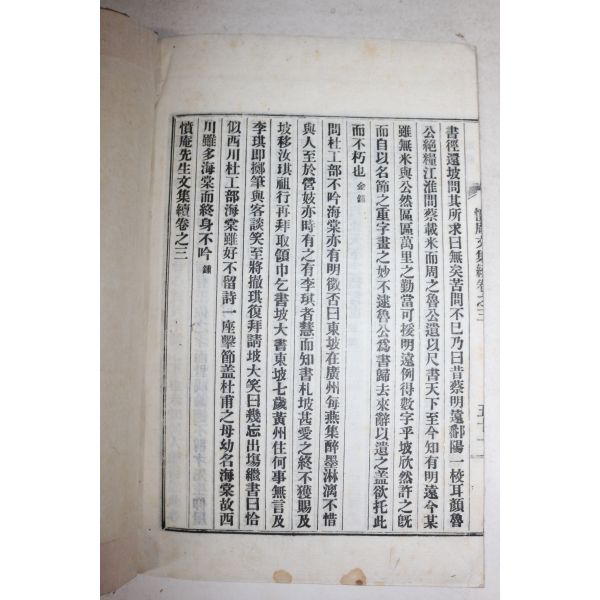 憤庵文集續卷之三
書徑還坡問其所求曰無矣苦問不已乃曰昔蔡明遠鄱陽一校耳顔魯
公絶糧江淮間蔡載米而周之魯公遺以尺書天下至今知有明遠今某
雖無米與公然區區萬里之勤當可援明遠例得數字乎坡欣然許之旣
而自以名節之重字畫之妙不逮魯公爲書歸去來辭以遺之盖欲托此
而不朽也 金錘
問杜工部不吟海棠亦有明徵否曰東坡在廣州每燕集醉墨淋漓不惜
與人至於營妓亦時有之有李琪者慧而知書札坡甚愛之終不獲賜及
坡移汝琪祖行再拜取領巾乞書坡大書東坡七歲黃州住何事無言及
李琪卽擲筆與客談笑至將撤琪復拜請坡大笑曰幾忘出塲繼書曰恰
似西川杜工部海棠雖好不留詩一座擊節盖杜甫之母幼名海棠故西
川雖多海棠而終身不吟 錘
憤庵先生文集續卷之三